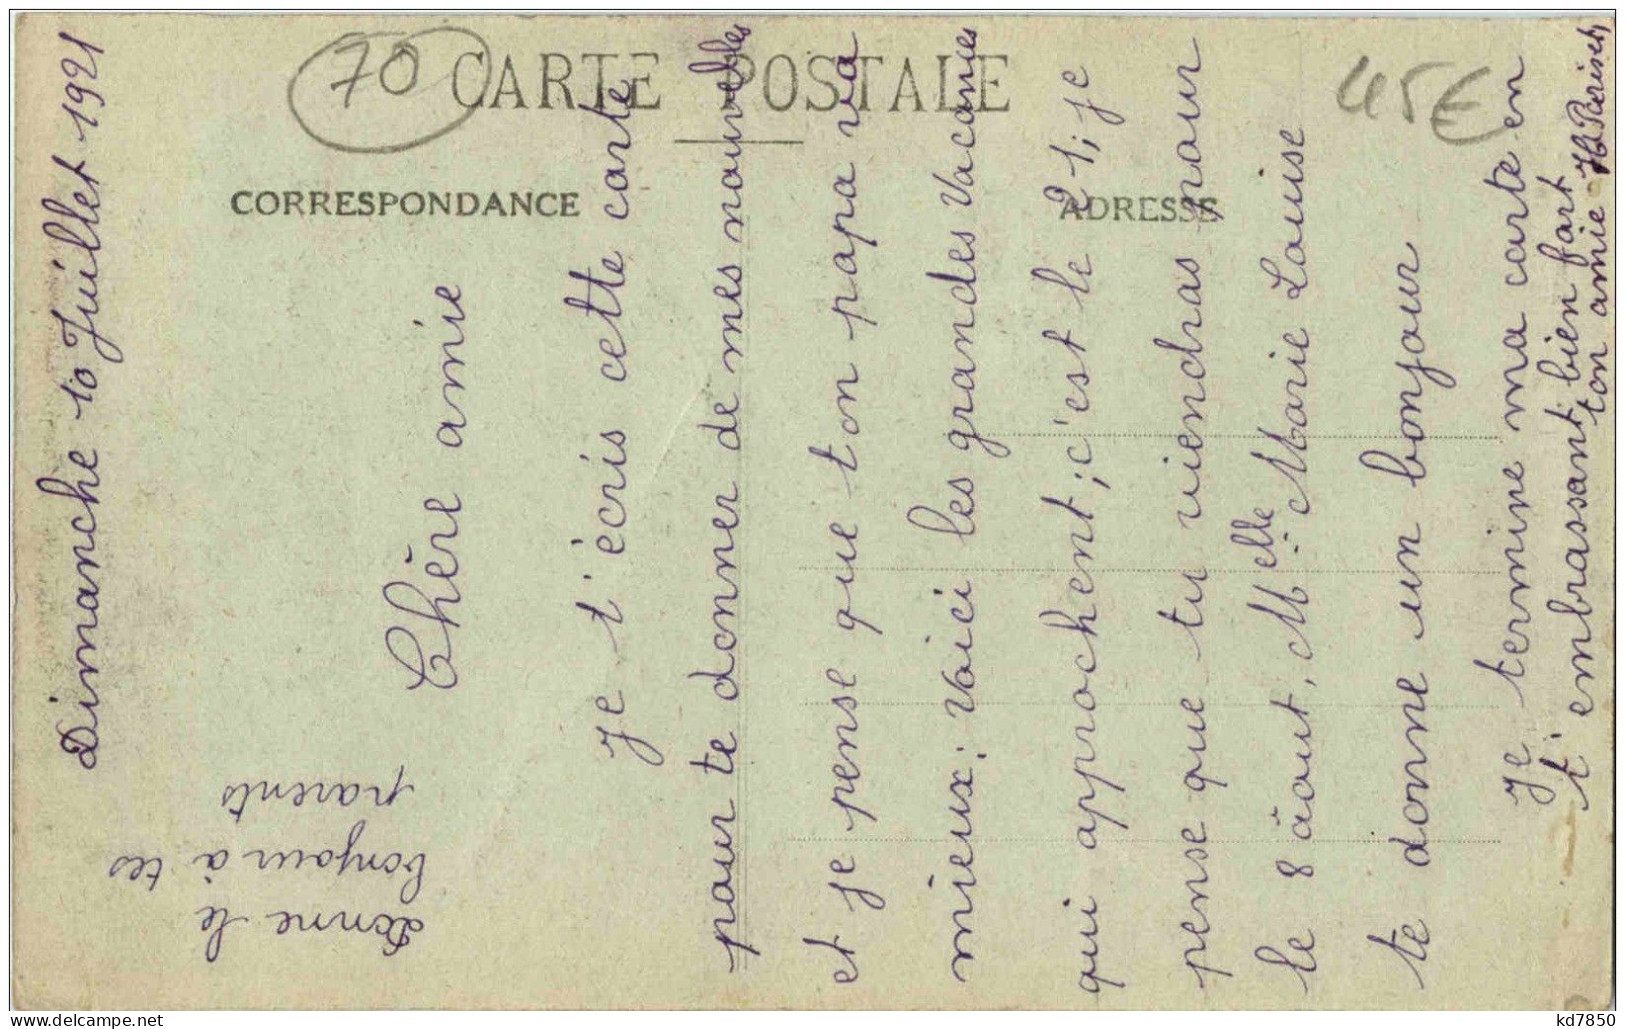 70
CARTE POSTALE
45€
CORRESPONDANCE
ADRESSE
Dimanche 10 Juillet 1921
Chère amie
Je t'écris cette carte
pour te donner de mes nouvelles
et je pense que ton papa va
mieux; Voici les grandes Vacances
qui approchent; c'est le 21; je
pense que tu viendras pour
le 8 âout. Melle Marie Louise
te donne un bonjour
Je termine ma carte en
t'embrassant bien fort
ton amie
Donne le
bonjour à tes
parents
kd7850